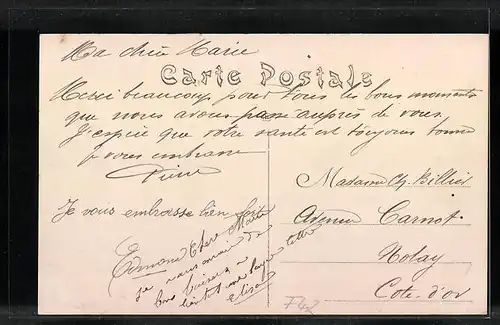 Ma chère Marie
Carte Postale
Merci beaucoup pour tous les bons moments
que nous avons passé auprès de vous.
J'espère que votre santé est toujours bonne
je vous embrasse
Pierre
Je vous embrasse bien fort
Madame Ch. Billier
Avenue Carnot
Nolay
Cote d'or
Chère
je vous
bons baisers
bientôt